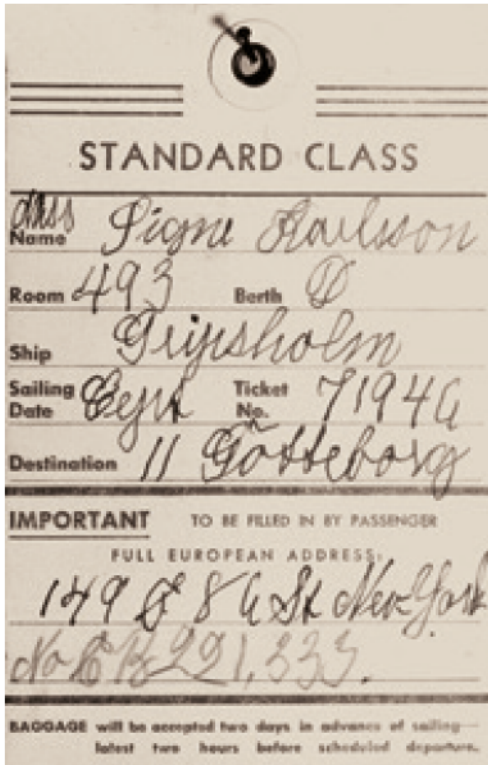 STANDARD CLASS
Name Signe Karlsson
Room 493 Berth D
Ship Gripsholm
Sailing Date Sept Ticket No. 7194
Destination 11 Götteborg
IMPORTANT TO BE FILLED IN BY PASSENGER
FULL EUROPEAN ADDRESS:
149 St New York
No 221,333.
BAGGAGE will be accepted two days in advance of sailing—
latest two hours before scheduled departure.